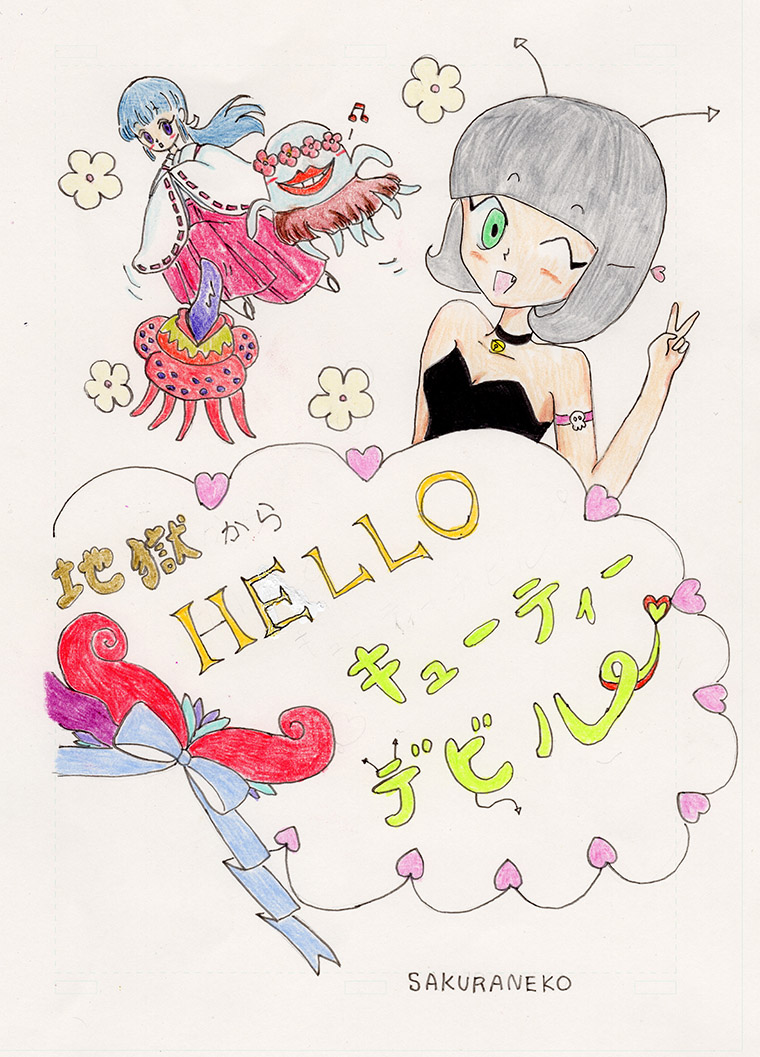 地獄から
HELLO
キューティー
デビル
SAKURANEKO